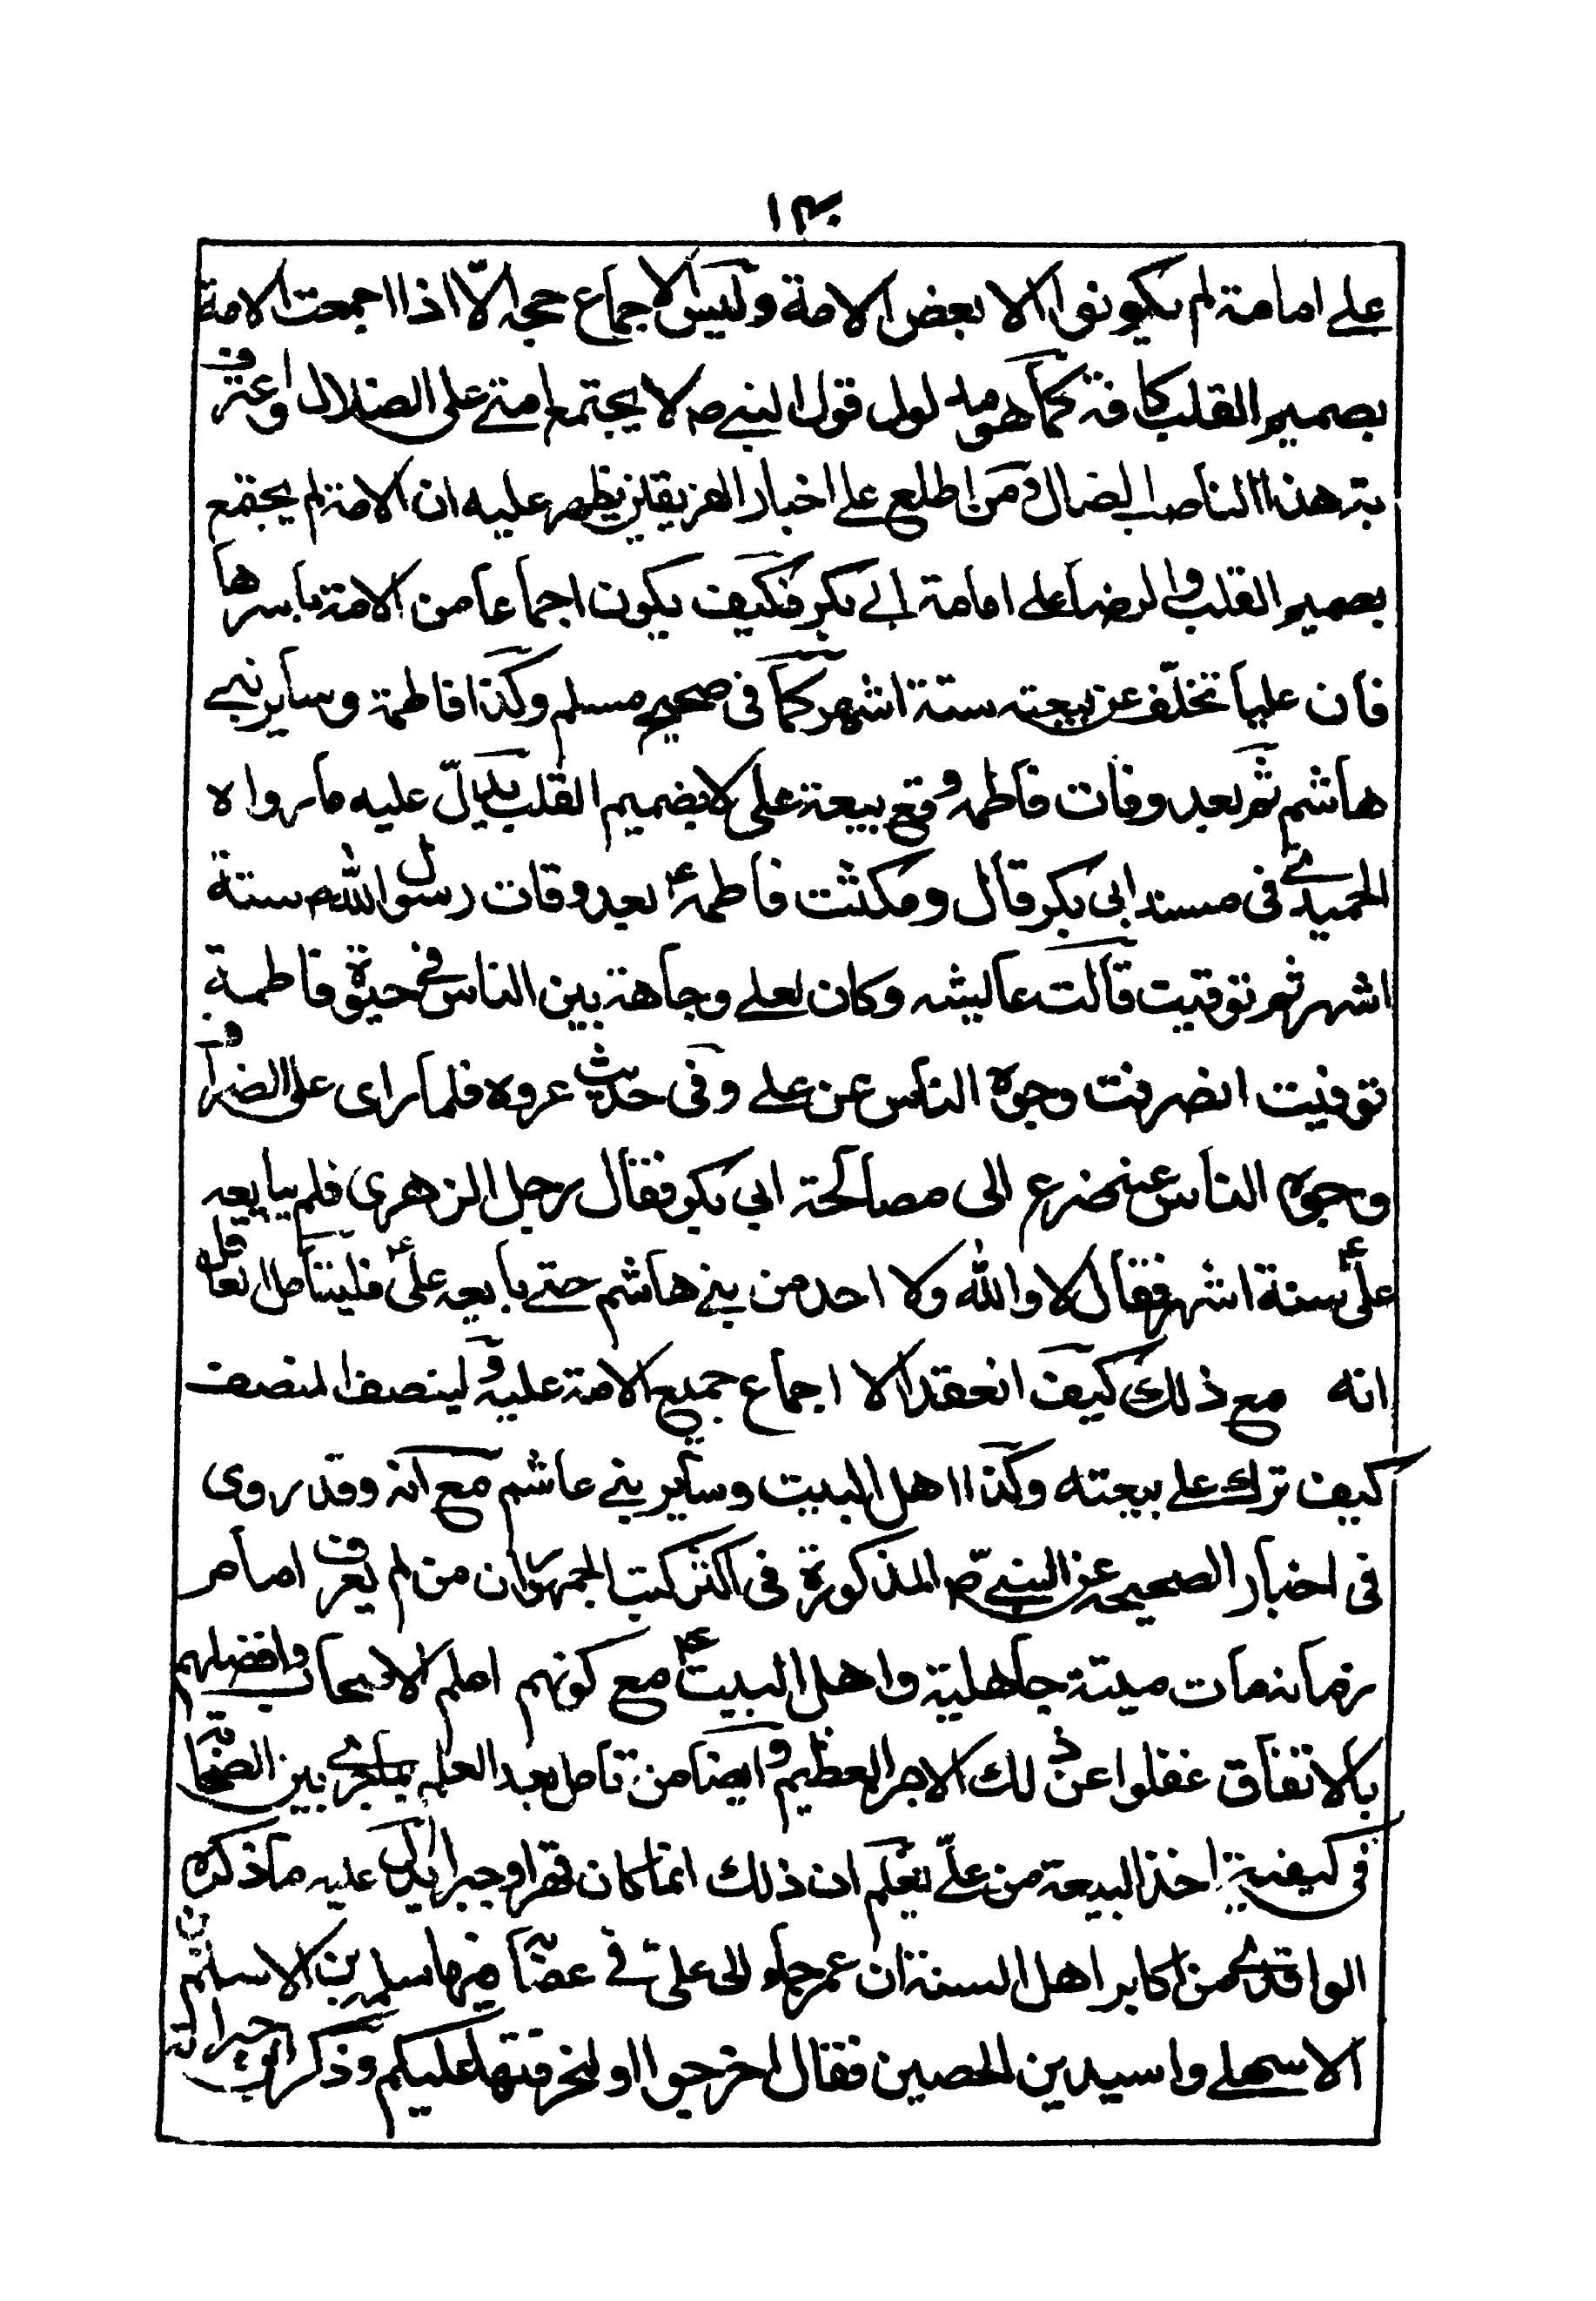 ١٣٠
على امامة لم يكونوا الا بعض الامة وليس الاجماع حجة الّا اذا اجمعت الامة
بصميم القلب كافة كما هو مدلول قول النبي ص لا يجتمع امتي على الضلال واعترف
به هذا الناصب الضال ومن اطلع على اخبار الفريقين يظهر عليه ان الامة لم يجتمع
بصميم القلب والرضا على امامة ابي بكر فكيف يكون اجماعا من الامة باسرها
فان عليا تخلّف عن بيعته ستة اشهر كما في صحيح مسلم وكذا فاطمة وساير بني
هاشم ثم بعد وفات فاطمة وقع بيعة على لا بضميم القلب يدلّ عليه ما رواه
الحميدي في مسند ابي بكر قال ومكثت فاطمة ع بعد وفات رسول الله ص ستة
اشهر ثم توفيت قالت عاليشه وكان لعلي وجاهة بين الناس في حيوة فاطمة
توفيت انصرفت وجوه الناس عن علي وفي حديث عروه فلما راى على انصراف
وجوه الناس عنه ضرع الى مصالحة ابي بكر فقال رجل الزهري فلم يبايعه
علي ع ستة اشهر فقال لا والله ولا احد من بني هاشم حتى بايعه علي ع فليتأمل العاقل
انه مع ذلك كيف انعقد الا اجماع جميع الامة عليه ولينصف المنصف
كيف ترك علي بيعته وكذا اهل البيت وساير بني عاشم مع انه وقد روى
في اخبار الصحيحه عن النبي ص المذكورة في اكثر كتب الجمهور ان من لم يعرف امام
زمانه مات ميتة جاهلية واهل البيت ع مع كونهم اعلم الاصحاب وافضلهم
بالاتفاق غفلوا عن ذلك الامر العظيم وايضا من تامل بعد العلم بما جرى بين الصحابة
في كيفية اخذ البيعة من عليّ يعلم ان ذلك انما كان قهرا وجبرا يدل عليه ما ذكره
الواقدي من اكابر اهل السنة ان عمر جاء الى علي في عصابة منها سلمه بن الاسلم
الاسهلي واسيد بن الحصين فقال اخرجوا او لنحرقنها عليكم وذكر ابن